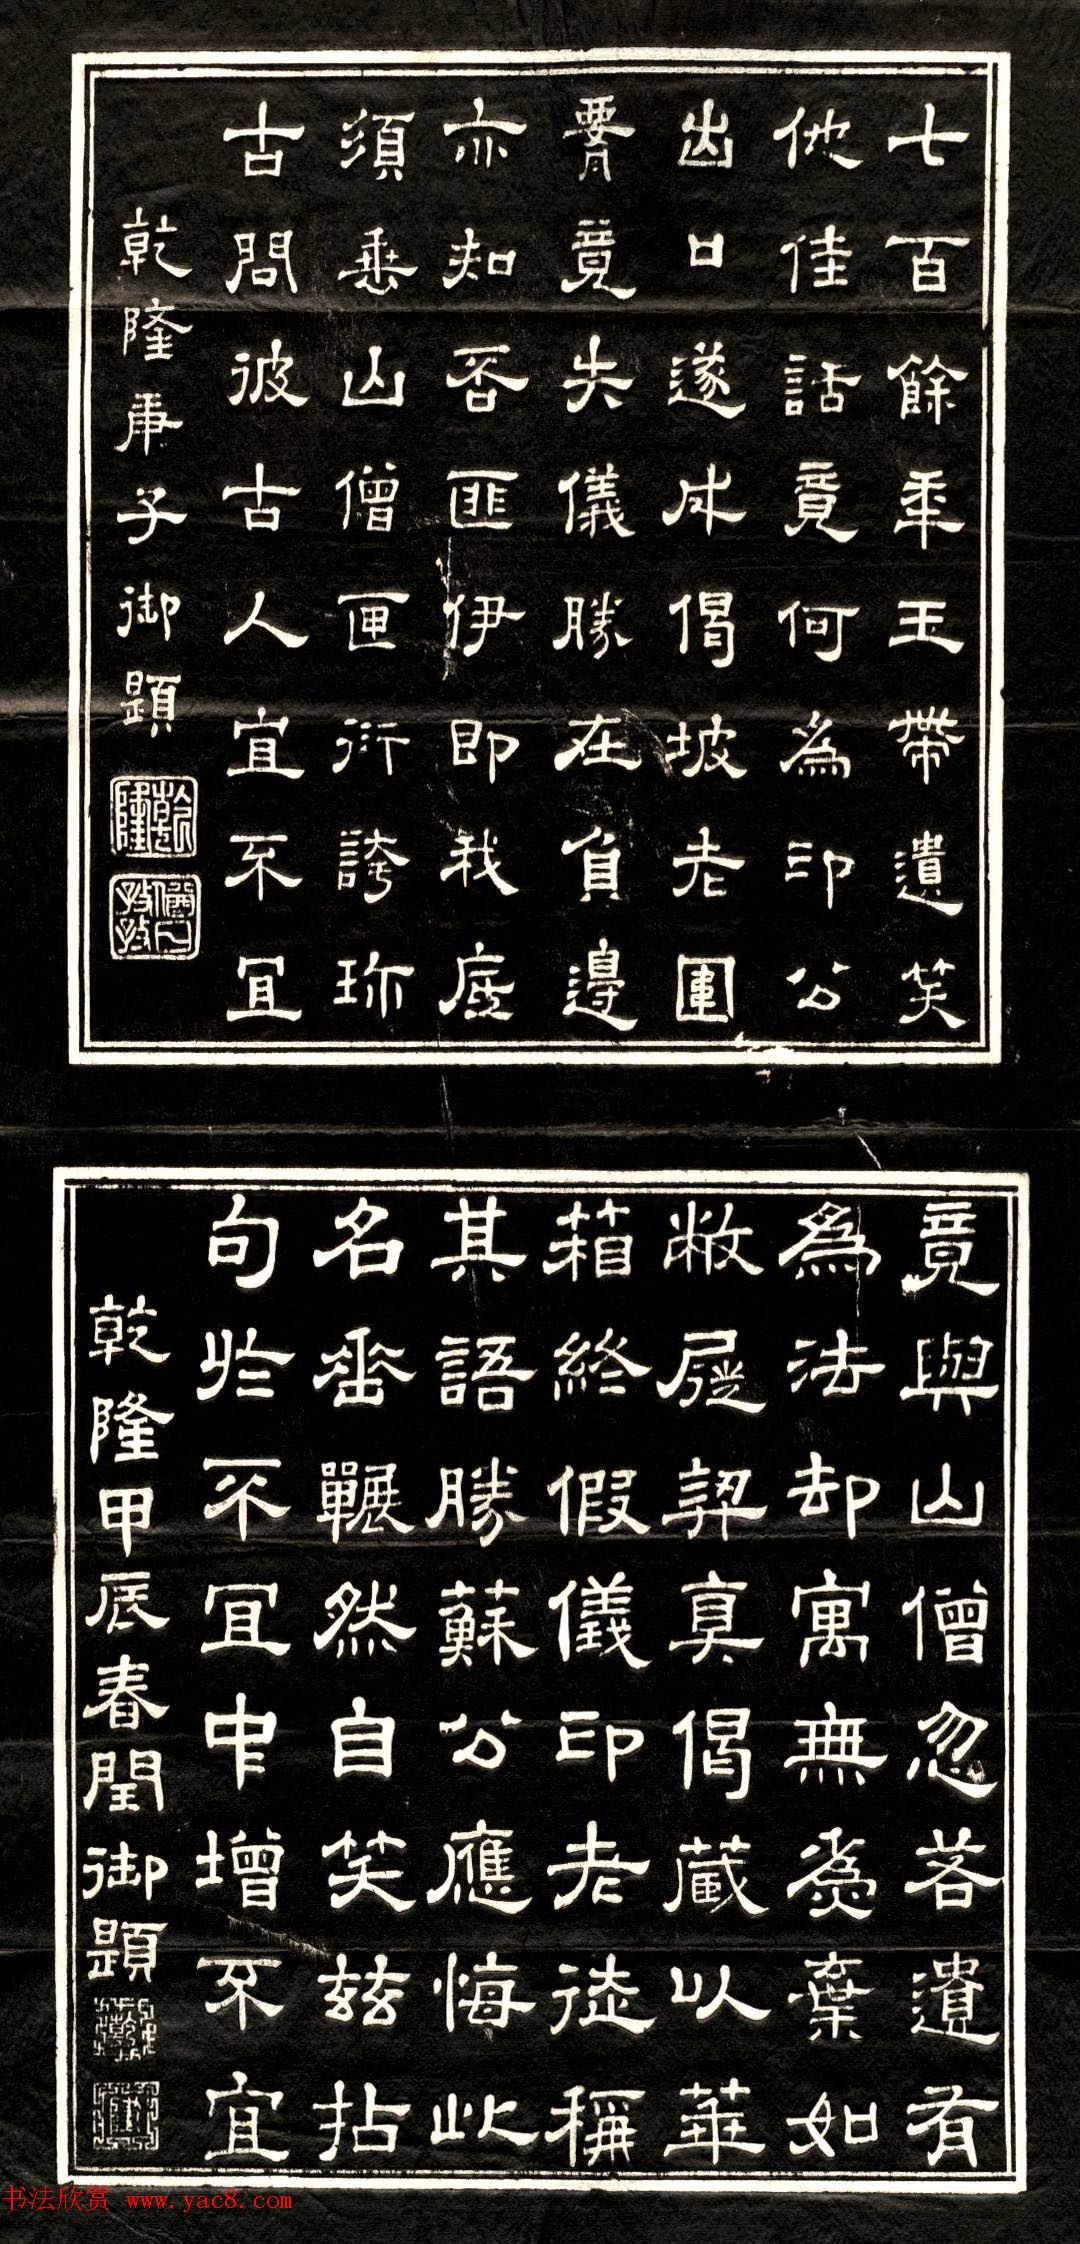 七百餘年玉帶遺笑
他佳話竟何為印公
出口遂成偈坡老圍
腰竟失儀勝在負邊
亦知否匪伊即我底
須山僧匣衍誇珎
古問彼古人宜不宜
乾隆庚子御題
乾隆
猶日孜孜
竟與山僧忽若遺有
為法却寓無為棄如
敝屣契真偈藏以華
箱終假儀印老徒稱
其語勝蘇公應悔此
名垂囅然自笑茲拈
句於不宜中增不宜
乾隆甲辰春閏御題
书法欣赏 www.yac8.com